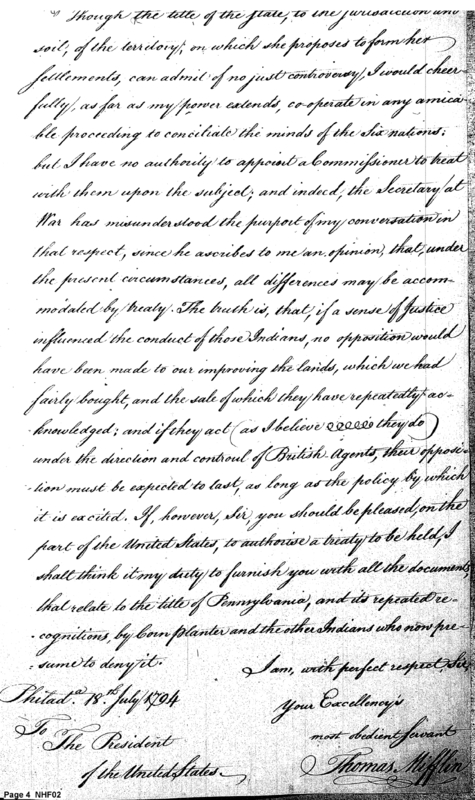 Though the title of the State, to the jurisdiction and
soil, of the territory, on which she proposes to form her
settlements, can admit of no just controversy, I would cheer
fully, as far as my power extends, co-operate in any amica
ble proceeding to conciliate the minds of the Six nations;
but I have no authority to appoint a Commissioner to treat
with them upon the subject; and indeed, the Secretary at
War has misunderstood the purport of my conversation in
that respect, since he ascribes to me an opinion, that, under
the present circumstances, all differences may be accom-
modated by treaty. The truth is, that, if a sense of Justice
influenced the conduct of those Indians, no opposition would
have been made to our improving the lands, which we had
fairly bought, and the sale of which they have repeatedly ac-
-knowledged; and if they act (as I believe they do)
under the direction and controul of British Agents, their opposi-
-tion must be expected to last, as long as the policy by which
it is excited. If, however, Sir, you should be pleased, on the
part of the United States, to authorise a treaty to be held, I
shall think it my duty to furnish you with all the documents
that relate to the title of Pennsylvania, and its repeated re-
-cognitions, by Corn Planter and the other Indians who now pre-
-sume to deny it.
I am, with perfect respect, Sir,
Your Excellency's
most obedient servant
Thomas Mifflin
Philada. 18th July 1794
To
The President
of the United States.
Page 4 NHF02